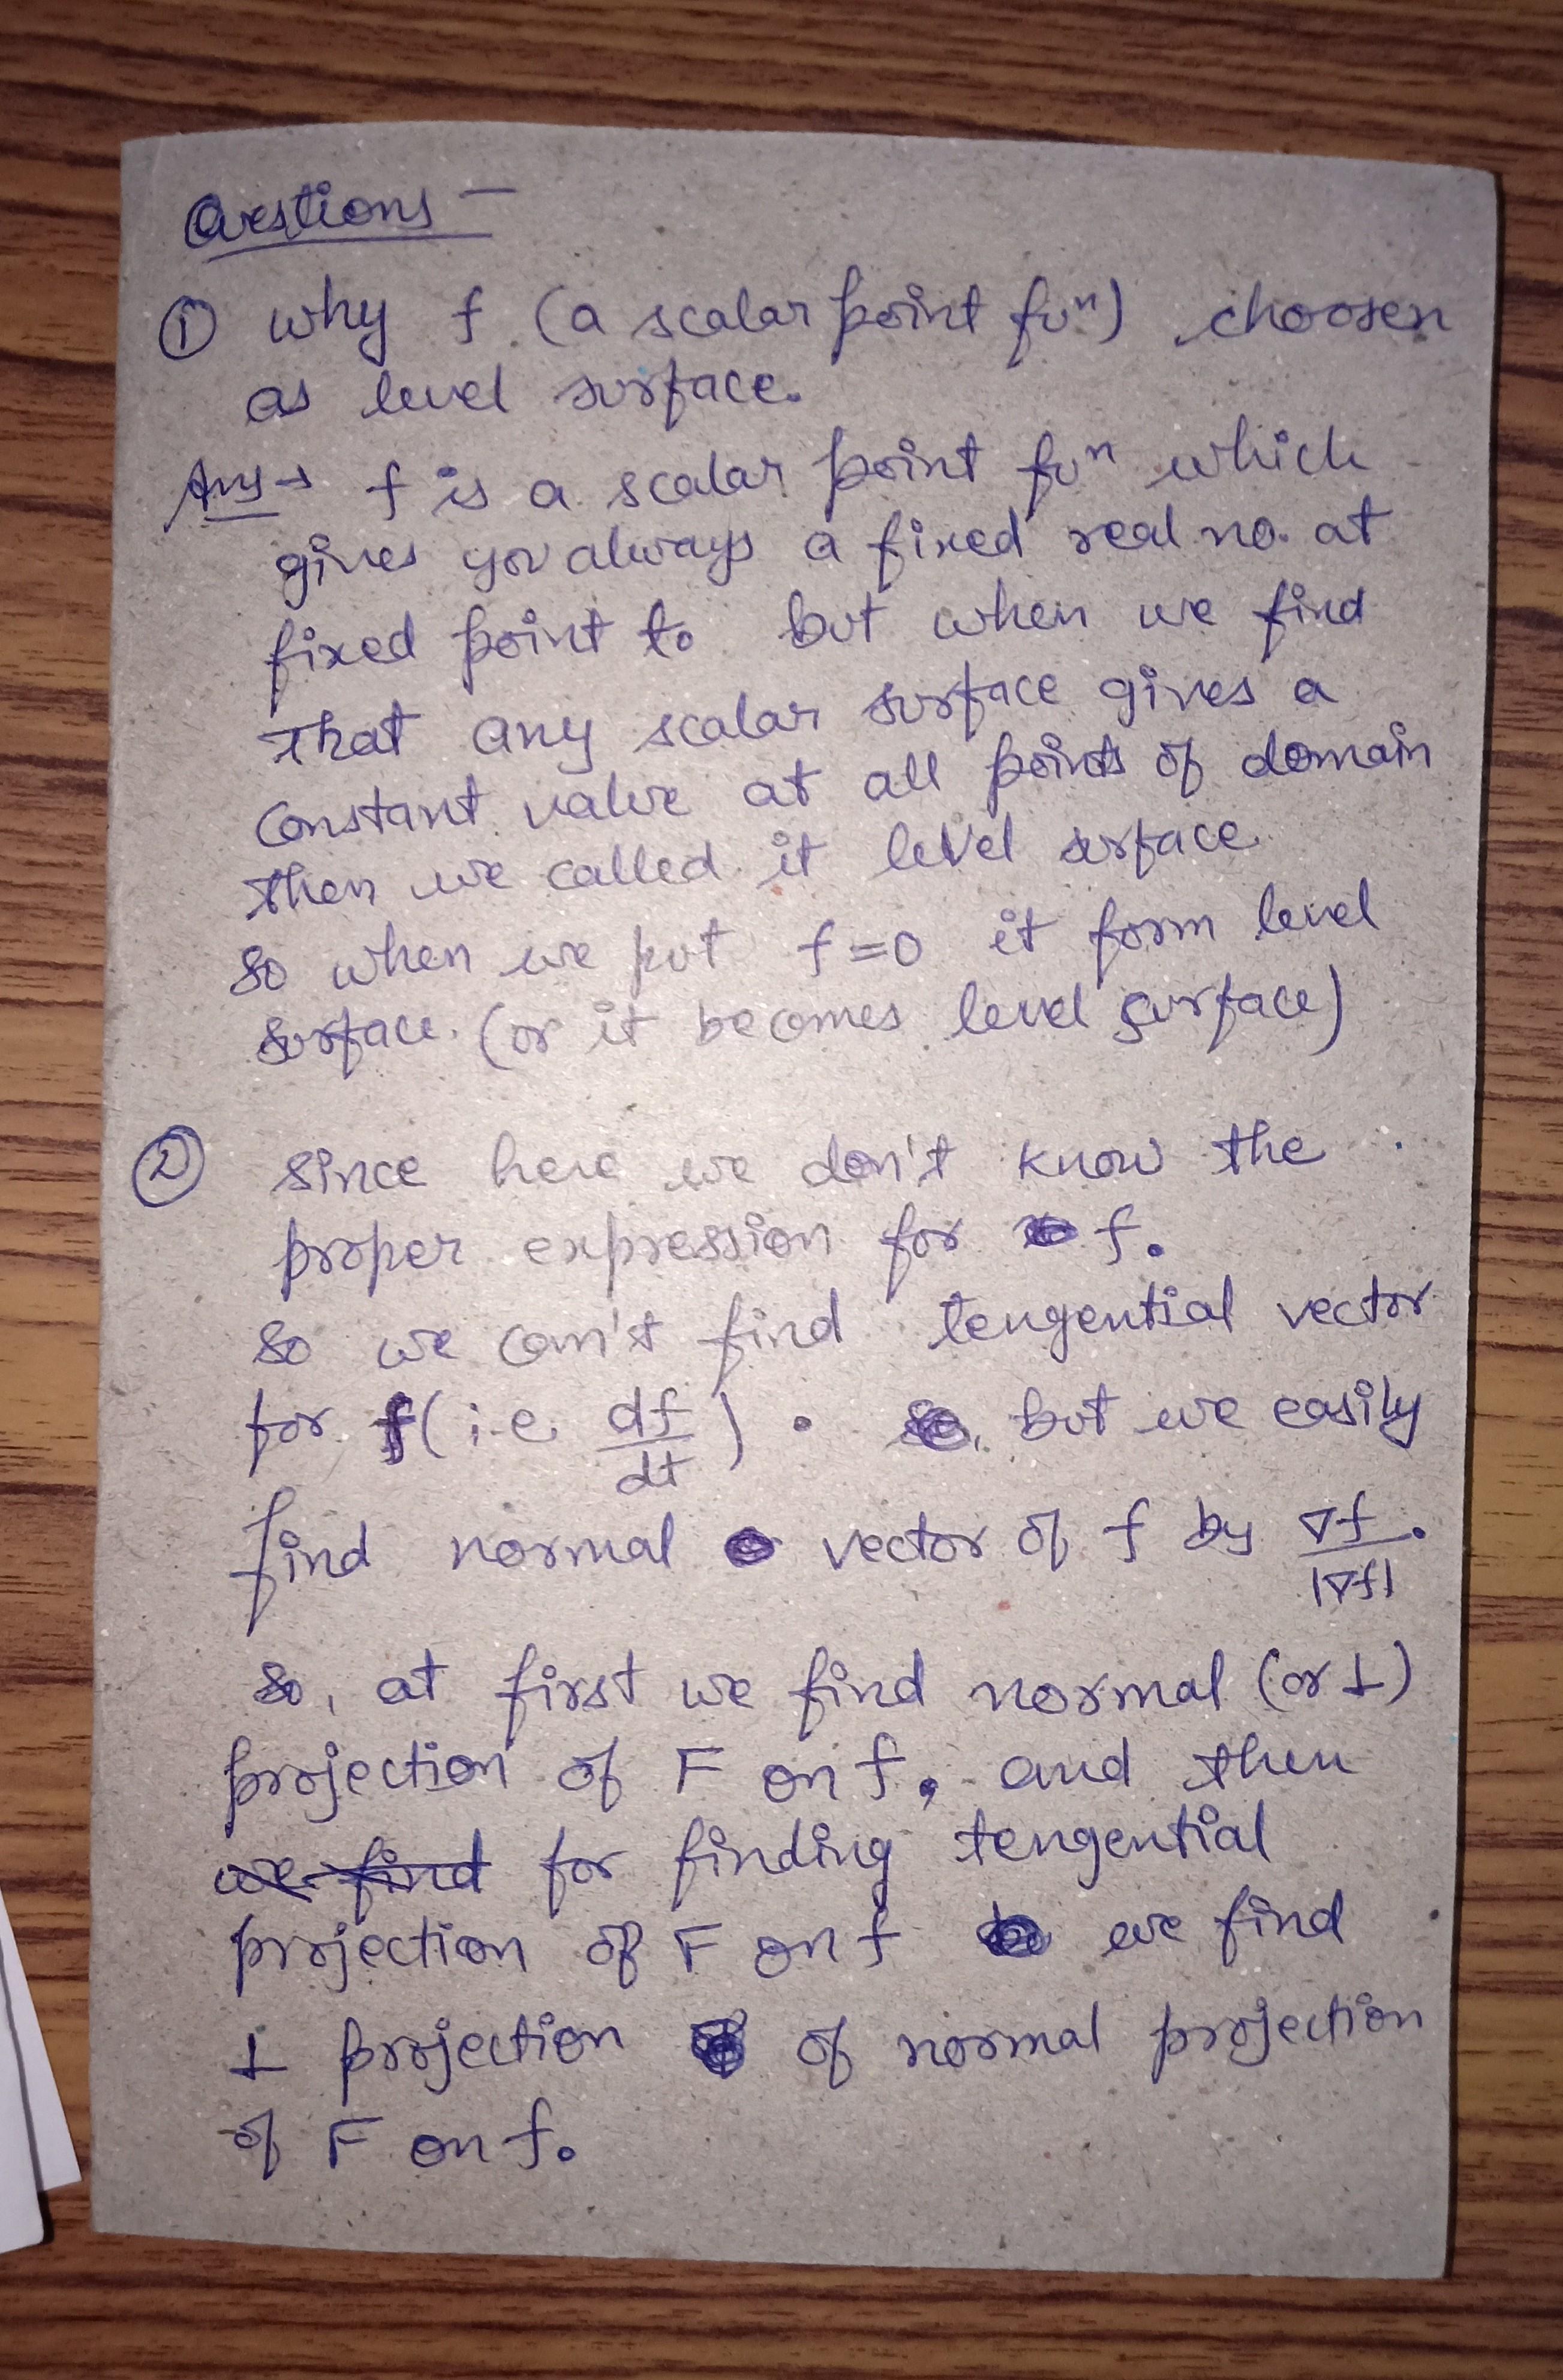 Questions -
① why f (a scalar point fuⁿ) choosen
as level surface.
Ans → f is a scalar point fuⁿ which
gives you always a fixed real no. at
fixed point to but when we find
that any scalar surface gives a
constant value at all points of domain
then we called it level surface
so when we put f=0 it form level
surface. (or it becomes level surface)
② since here we don't know the
proper expression for f.
so we can't find tengential vector
for f (i.e. df/dt). but we easily
find normal vector of f by ∇f/|∇f|.
so, at first we find normal (or ⊥)
projection of F on f. and then
we find for finding tengential
projection of F on f we find
⊥ projection of normal projection
of F on f.